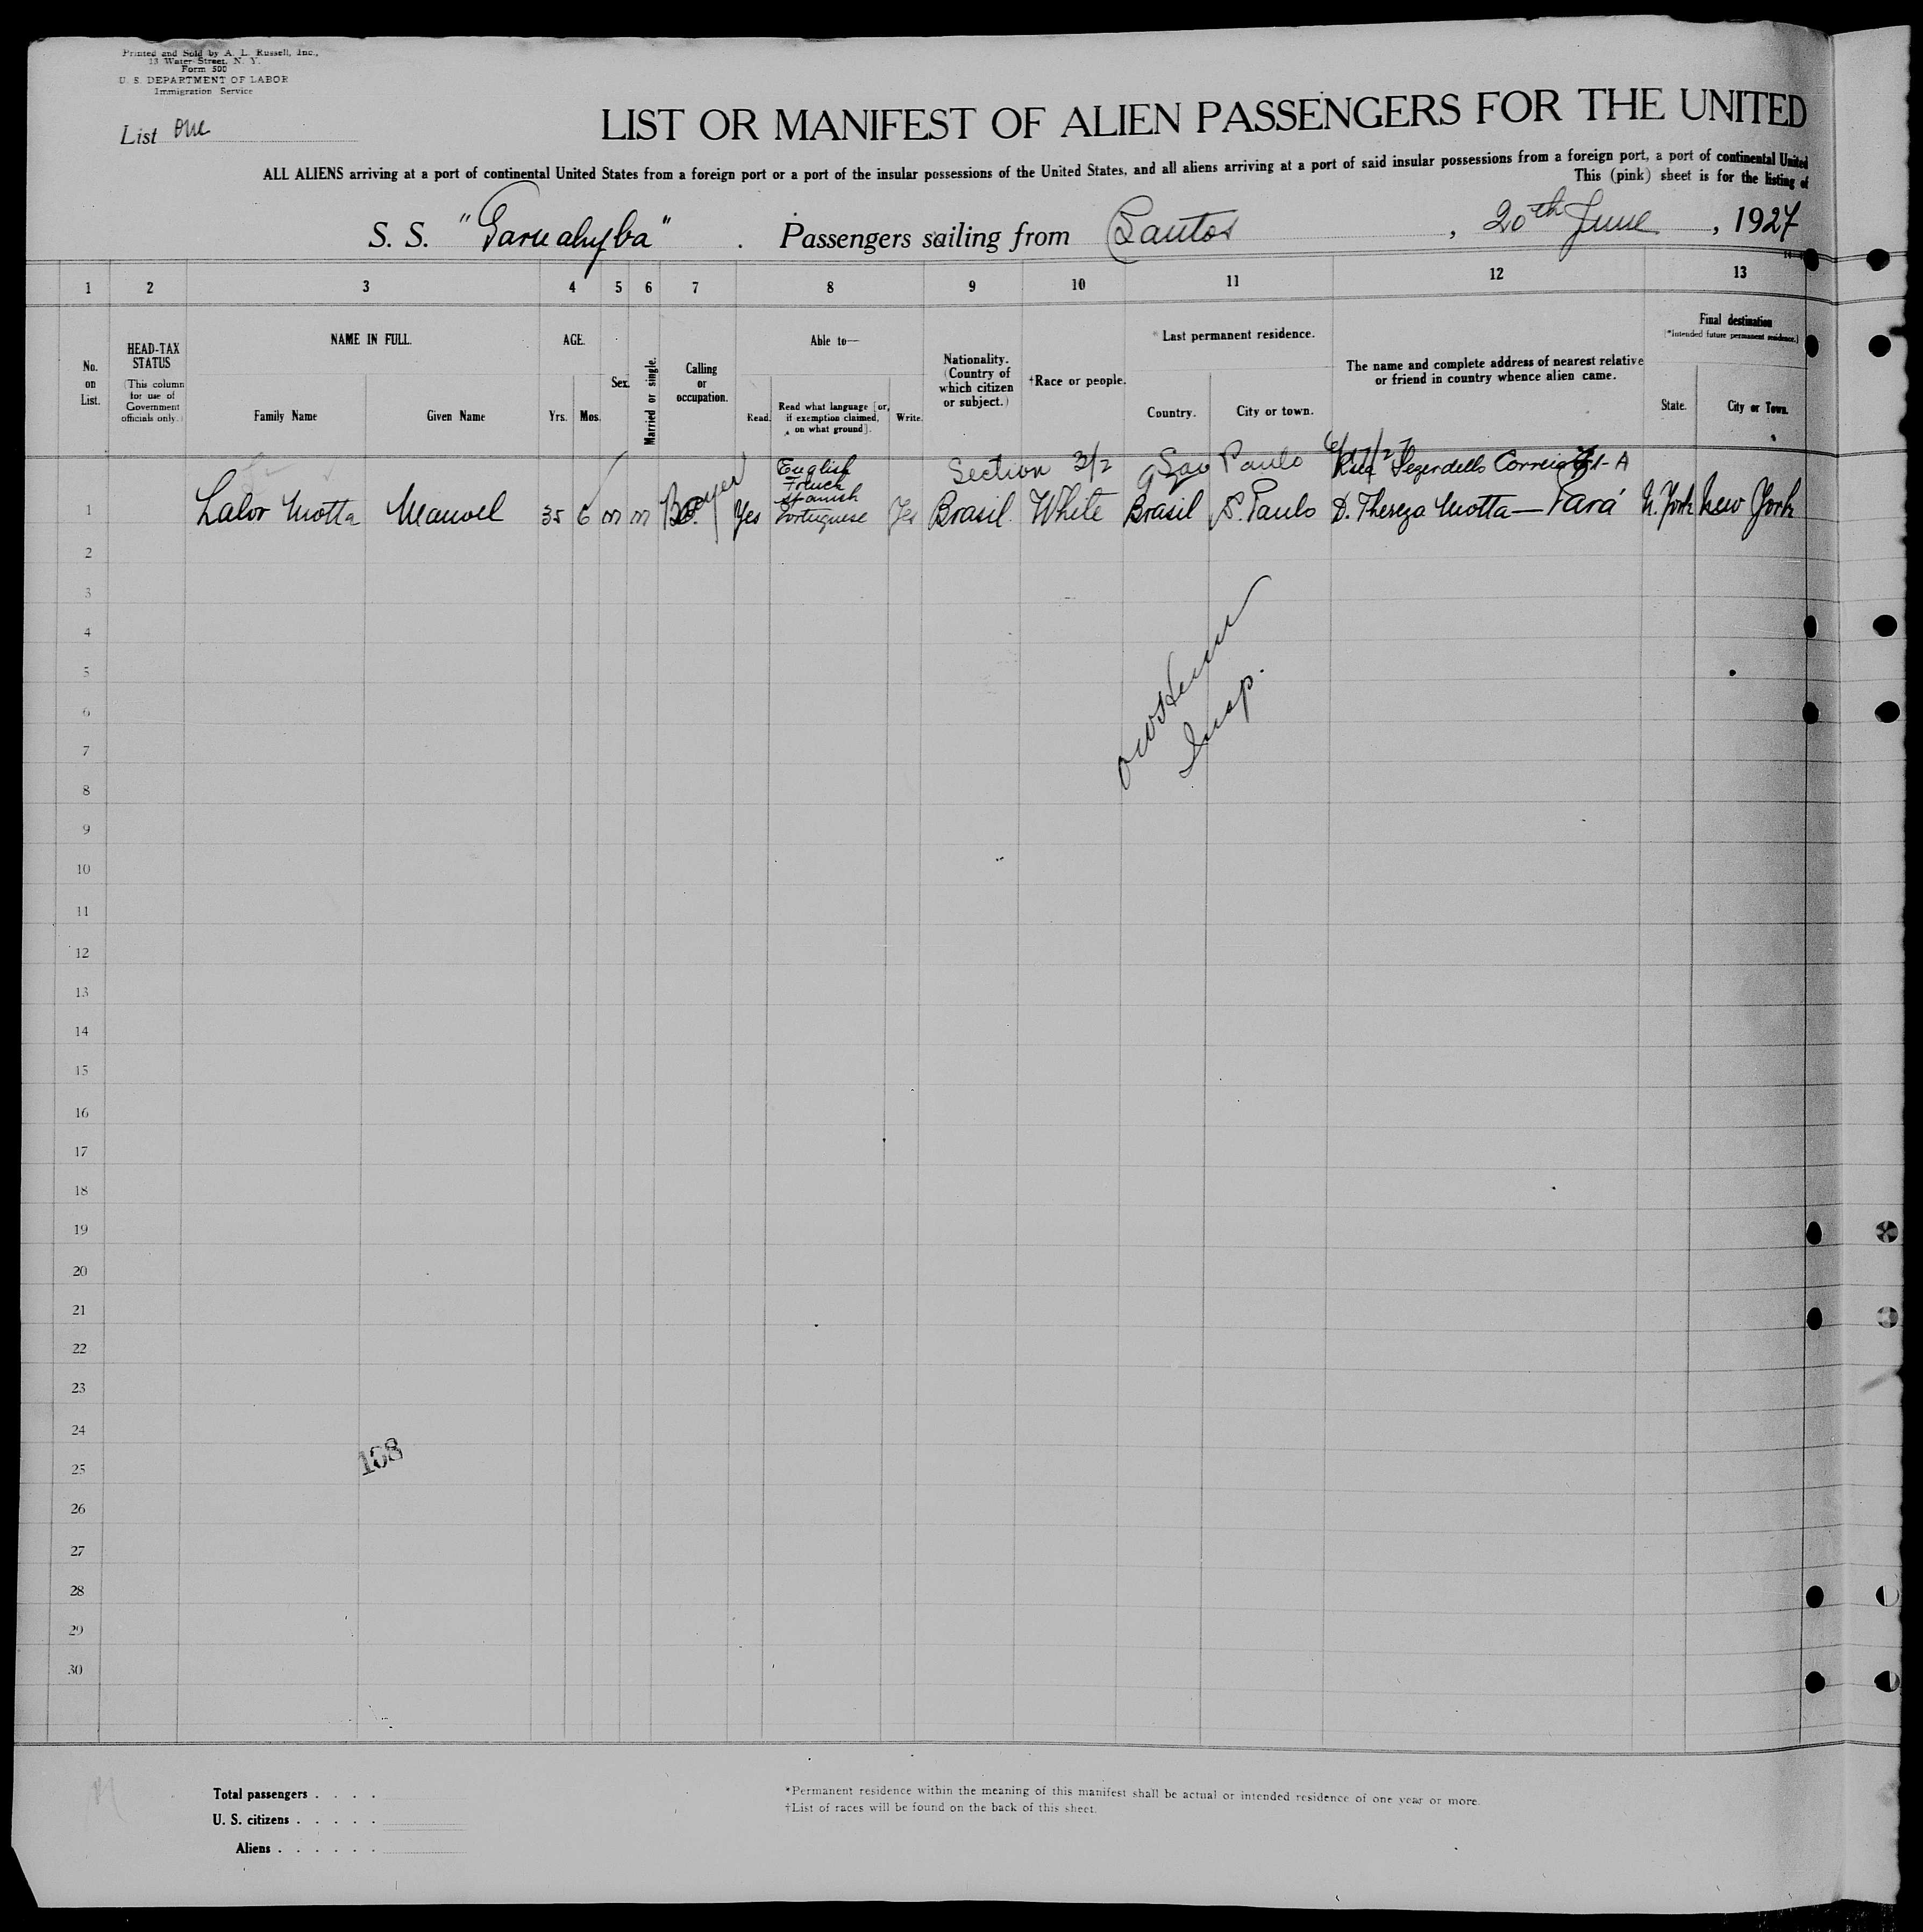 Printed and Sold by A. L. Russell, Inc.,
13 Water Street, N. Y.
Form 500
U. S. DEPARTMENT OF LABOR
Immigration Service
List One
LIST OR MANIFEST OF ALIEN PASSENGERS FOR THE UNITED
ALL ALIENS arriving at a port of continental United States from a foreign port or a port of the insular possessions of the United States, and all aliens arriving at a port of said insular possessions from a foreign port, a port of continental United
This (pink) sheet is for the listing of
S. S. "Parnahyba" . Passengers sailing from Santos , 20th June , 1927
1 2 3 4 5 6 7 8 9 10 11 12 13
No. on List.
HEAD-TAX STATUS (This column for use of Government officials only.)
NAME IN FULL.
Family Name Given Name
AGE.
Yrs. Mos.
Sex.
Married or single.
Calling or occupation.
Able to—
Read. Read what language [or, if exemption claimed, on what ground]. Write.
Nationality. (Country of which citizen or subject.)
†Race or people.
*Last permanent residence.
Country. City or town.
The name and complete address of nearest relative or friend in country whence alien came.
Final destination
(*Intended future permanent residence.)
State. City or Town.
Section 3/2 Sao Paulo
English
French
Spanish
1 Lalor Motta Manoel 35 6 m m Buyer Yes Portuguese Yes Brasil White Brasil S. Paulo D. Thereza Motta — Pará N. York New York
2
3
4
5
6
Insp.
7
8
9
10
11
12
13
14
15
16
17
18
19
20
21
22
23
24
138
25
26
27
28
29
30
Total passengers . . . .
U. S. citizens . . . . .
Aliens . . . . . .
*Permanent residence within the meaning of this manifest shall be actual or intended residence of one year or more.
†List of races will be found on the back of this sheet.